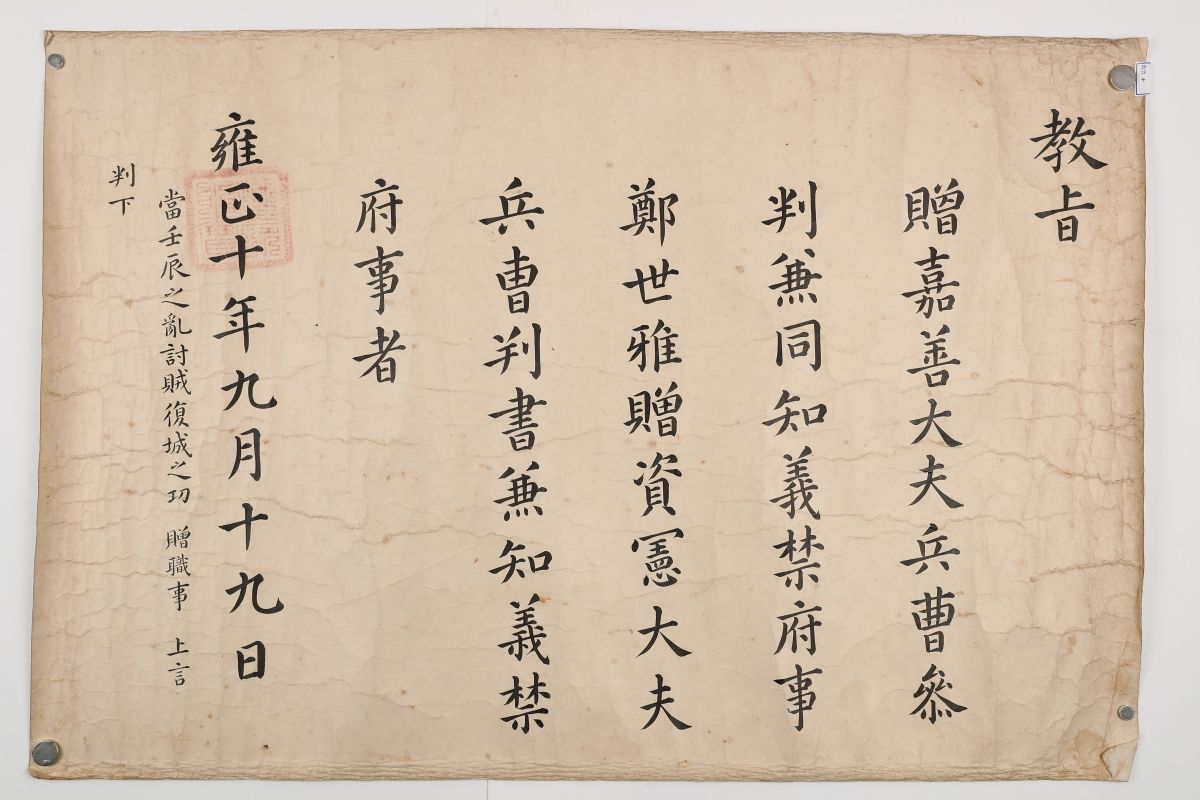 教旨
贈嘉善大夫兵曹叅
判兼同知義禁府事
鄭世雅贈資憲大夫
兵曺判書兼知義禁
府事者
雍正十年九月十九日
當壬辰之亂討賊復城之功 贈職事 上言
判下